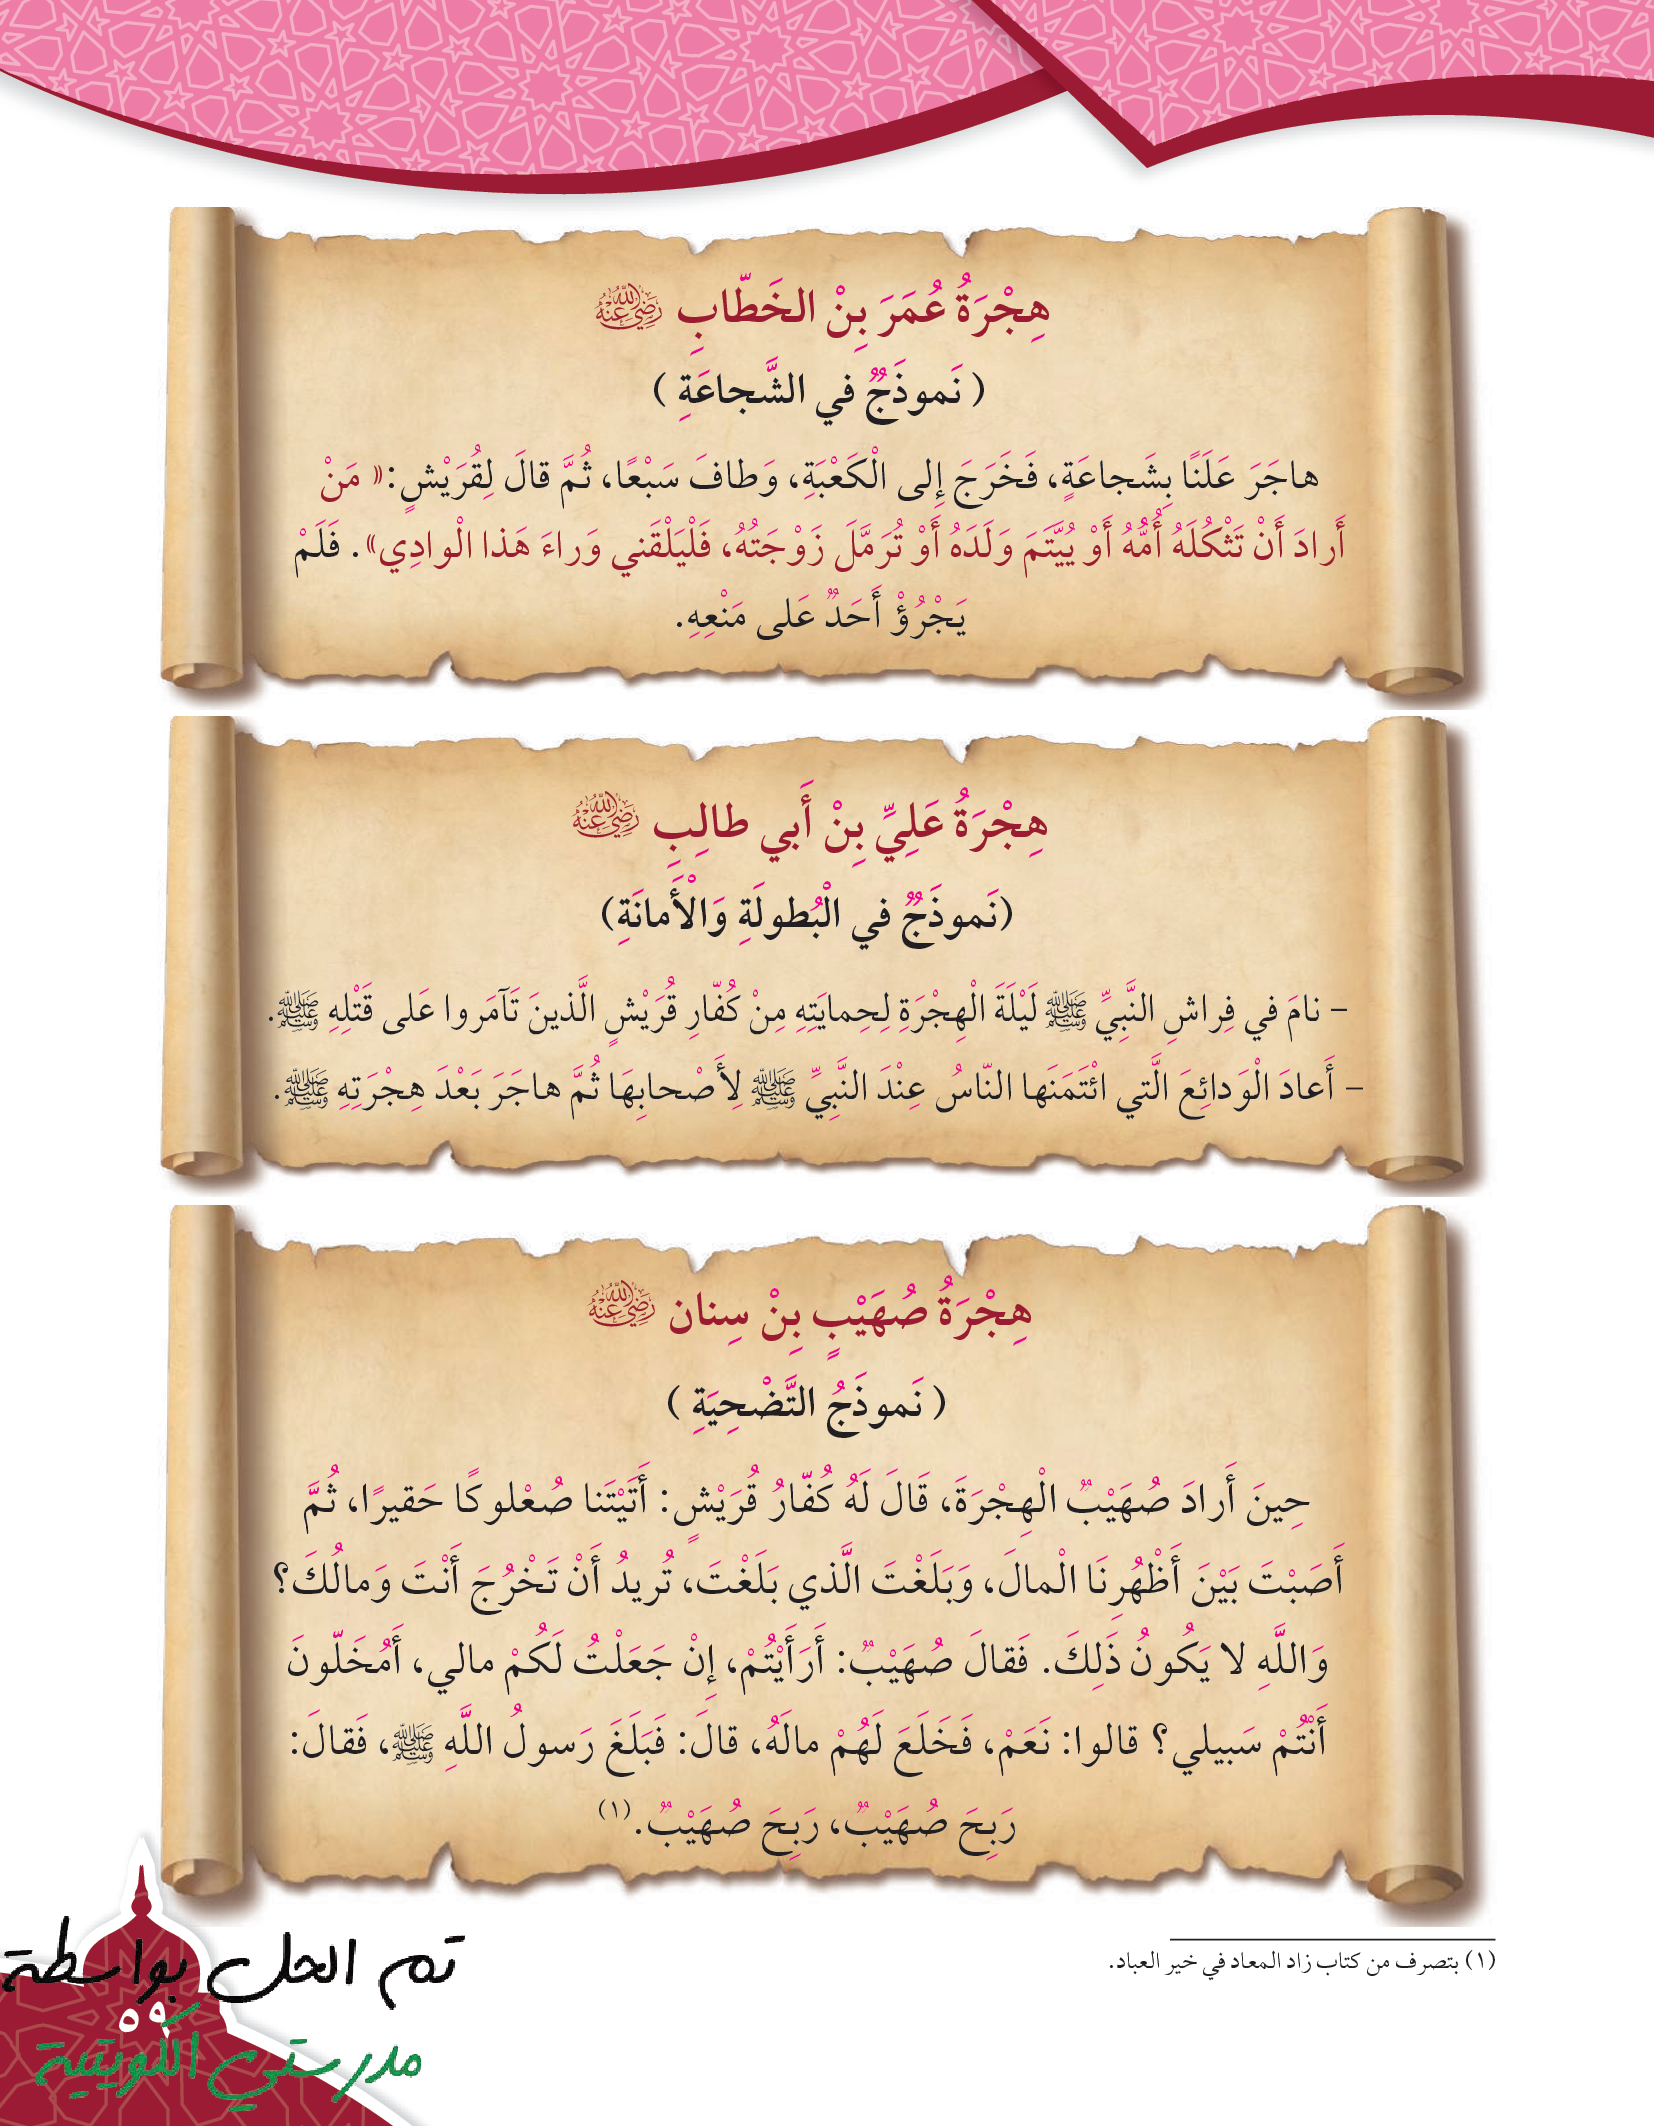 هِجْرَةُ عُمَرَ بِنْ الخَطّابِ رَضِيَ اللَّهُ عَنْهُ
( نَموذَجٌ في الشَّجاعَةِ )
هاجَرَ عَلَنًا بِشَجاعَةٍ، فَخَرَجَ إِلى الْكَعْبَةِ، وَطافَ سَبْعًا، ثُمَّ قالَ لِقُرَيْشٍ:« مَنْ
أَرادَ أَنْ تَثْكُلَهُ أُمُّهُ أَوْ يُيَتَّمَ وَلَدَهُ أَوْ تُرَمَّلَ زَوْجَتُهُ، فَلْيَلْقَني وَراءَ هَذا الْوادِي». فَلَمْ
يَجْرُؤْ أَحَدٌ عَلى مَنْعِهِ.
هِجْرَةُ عَلِيِّ بِنْ أَبي طالِبِ رَضِيَ اللَّهُ عَنْهُ
(نَموذَجٌ في الْبُطولَةِ وَالْأَمانَةِ)
– نامَ في فِراشِ النَّبِيِّ ﷺ لَيْلَةَ الْهِجْرَةِ لِحِمايَتِهِ مِنْ كُفّارِ قُرَيْشٍ الَّذينَ تَآمَروا عَلى قَتْلِهِ ﷺ.
– أَعادَ الْوَدائِعَ الَّتي ائْتَمَنَها النّاسُ عِنْدَ النَّبِيِّ ﷺ لِأَصْحابِهَا ثُمَّ هاجَرَ بَعْدَ هِجْرَتِهِ ﷺ.
هِجْرَةُ صُهَيْبٍ بِنْ سِنان رَضِيَ اللَّهُ عَنْهُ
( نَموذَجُ التَّضْحِيَةِ )
حِينَ أَرادَ صُهَيْبٌ الْهِجْرَةَ، قَالَ لَهُ كُفّارُ قُرَيْشٍ: أَتَيْتَنا صُعْلوكًا حَقيرًا، ثُمَّ
أَصَبْتَ بَيْنَ أَظْهُرِنَا الْمالَ، وَبَلَغْتَ الَّذي بَلَغْتَ، تُريدُ أَنْ تَخْرُجَ أَنْتَ وَمالُكَ؟
وَاللَّهِ لا يَكُونُ ذَلِكَ. فَقالَ صُهَيْبٌ: أَرَأَيْتُمْ، إِنْ جَعَلْتُ لَكُمْ مالي، أَمُخَلّونَ
أَنْتُمْ سَبيلي؟ قالوا: نَعَمْ، فَخَلَعَ لَهُمْ مالَهُ، قالَ: فَبَلَغَ رَسولُ اللَّهِ ﷺ، فَقالَ:
رَبِحَ صُهَيْبٌ، رَبِحَ صُهَيْبٌ.(١)
(١) بتصرف من كتاب زاد المعاد في خير العباد.
تم الحل بواسطة
٥٩
مدرستي الكويتية